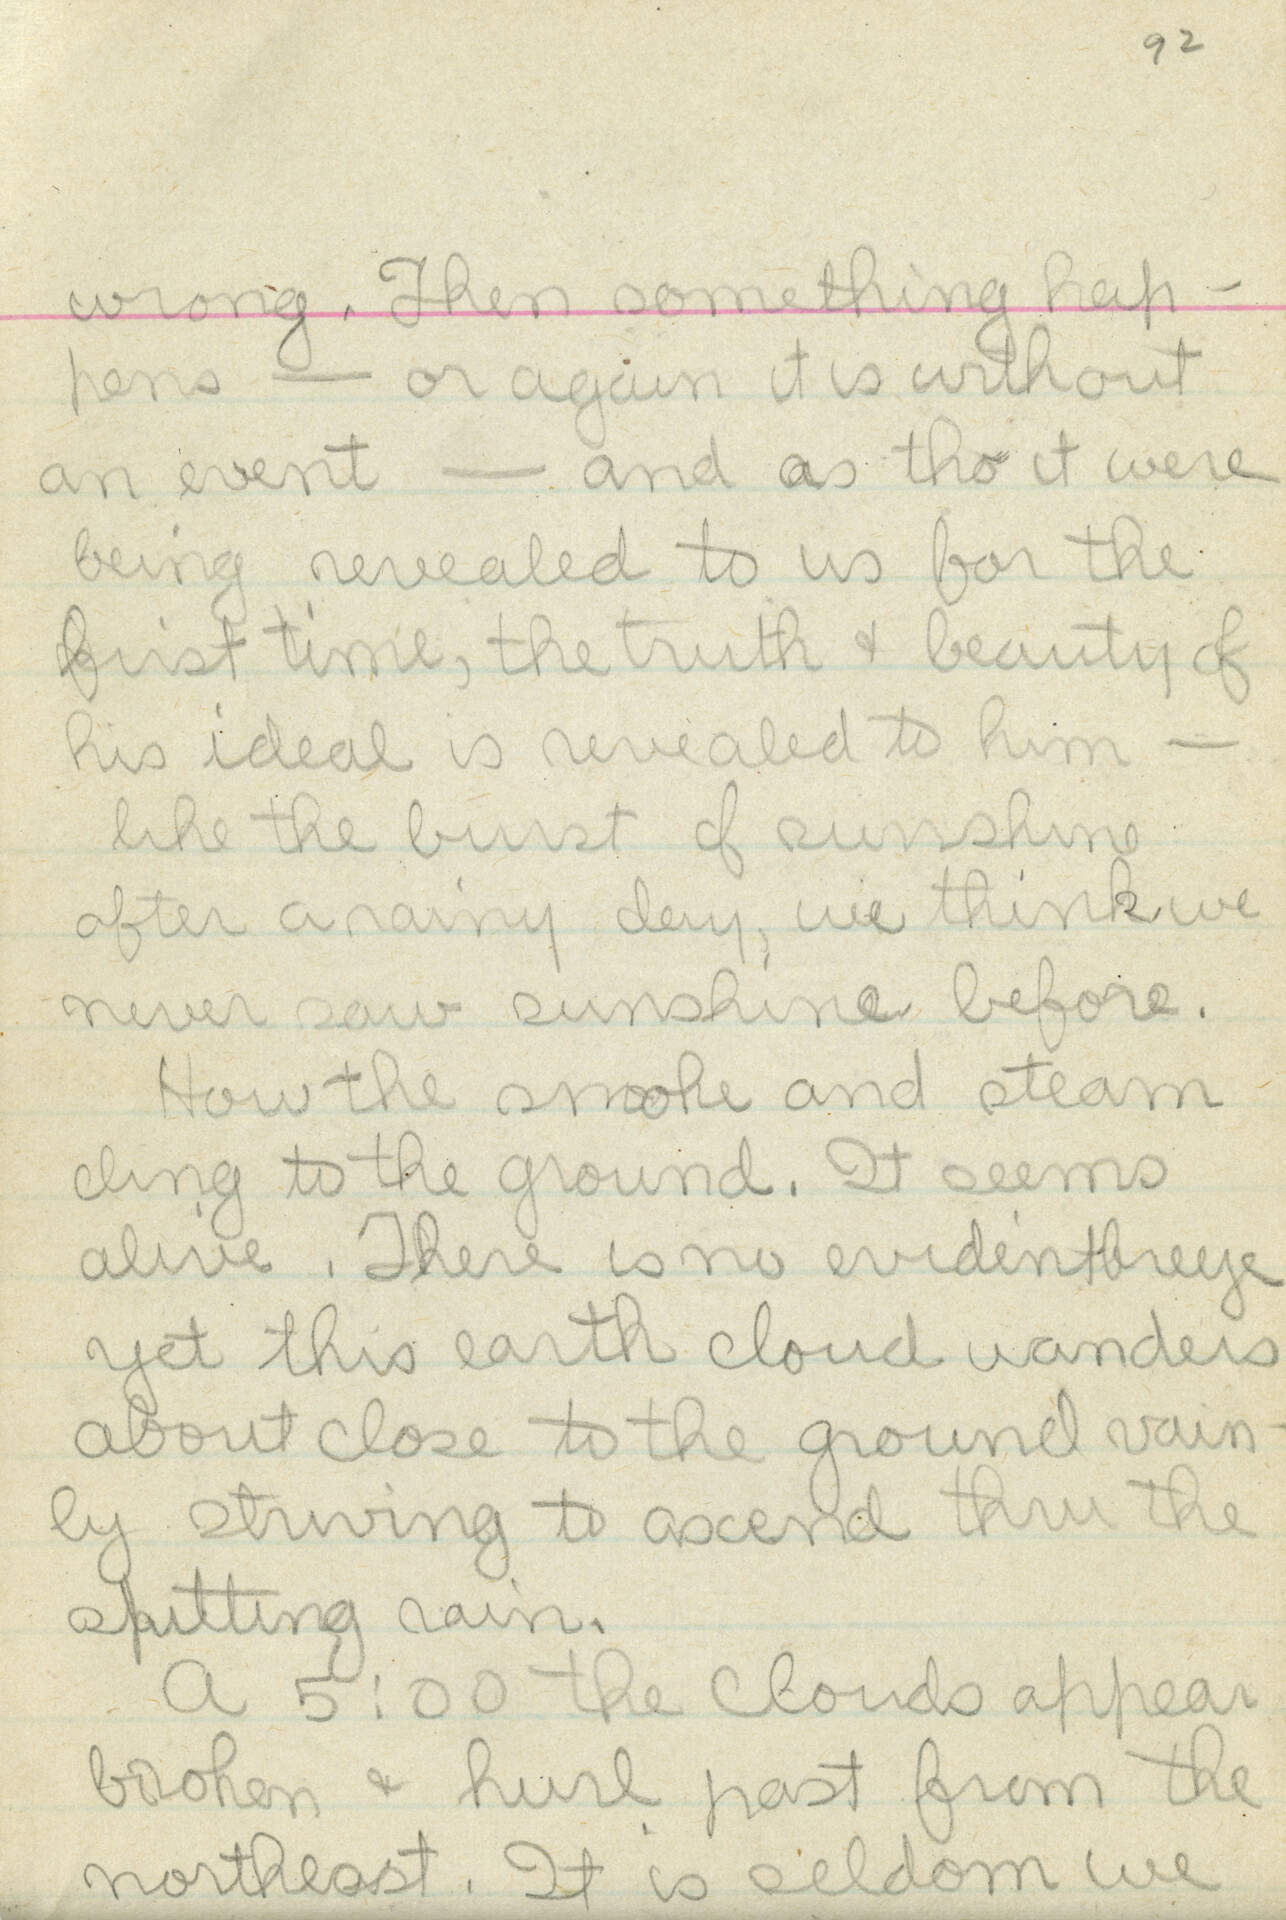 92
wrong. Then something hap-
pens — or again it is without
an event — and as tho it were
being revealed to us for the
first time, the truth & beauty of
his ideal is revealed to him —
like the burst of sunshine
after a rainy day, we think we
never saw sunshine before.
How the smoke and steam
cling to the ground. It seems
alive. There is no evident breeze
yet this earth cloud wanders
about close to the ground vain-
ly striving to ascend thru the
spitting rain.
A 5:00 the clouds appear
broken & hurl past from the
northeast. It is seldom we